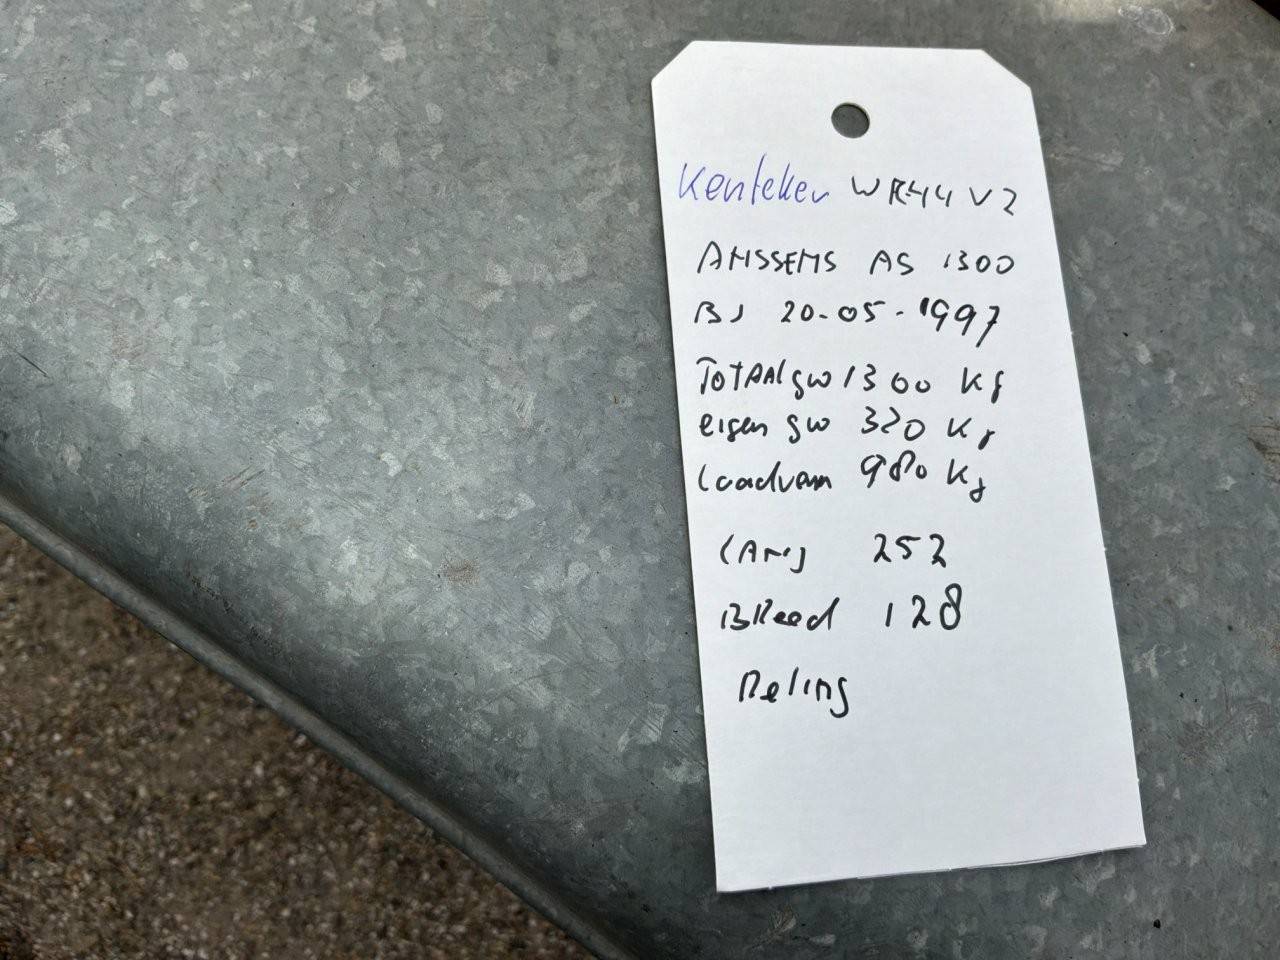 Kenteken WR44V2
ANSSEMS AS 1300
BJ 20-05-1997
TOTAAL gw 1300 Kg
eigen gw 320 Kg
Laadverm 980 Kg
LANG 252
BReed 128
Reling